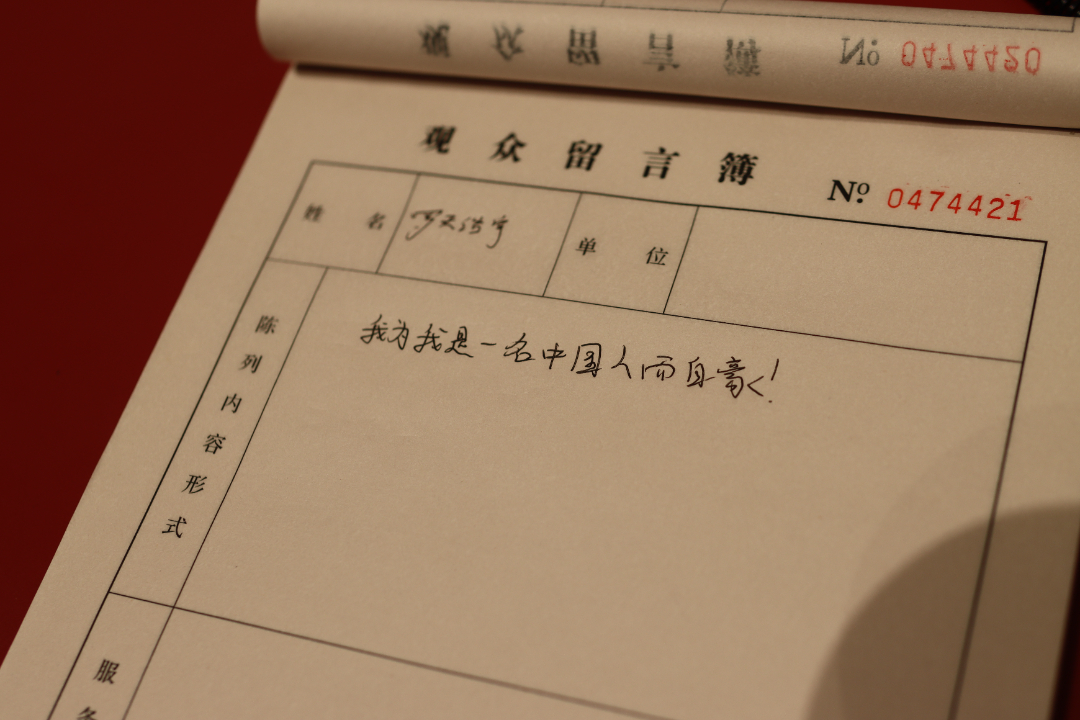 观众留言簿 № 0474420
观众留言簿 № 0474421
姓名
单位
我为我是一名中国人而自豪!
陈列内容形式
服务